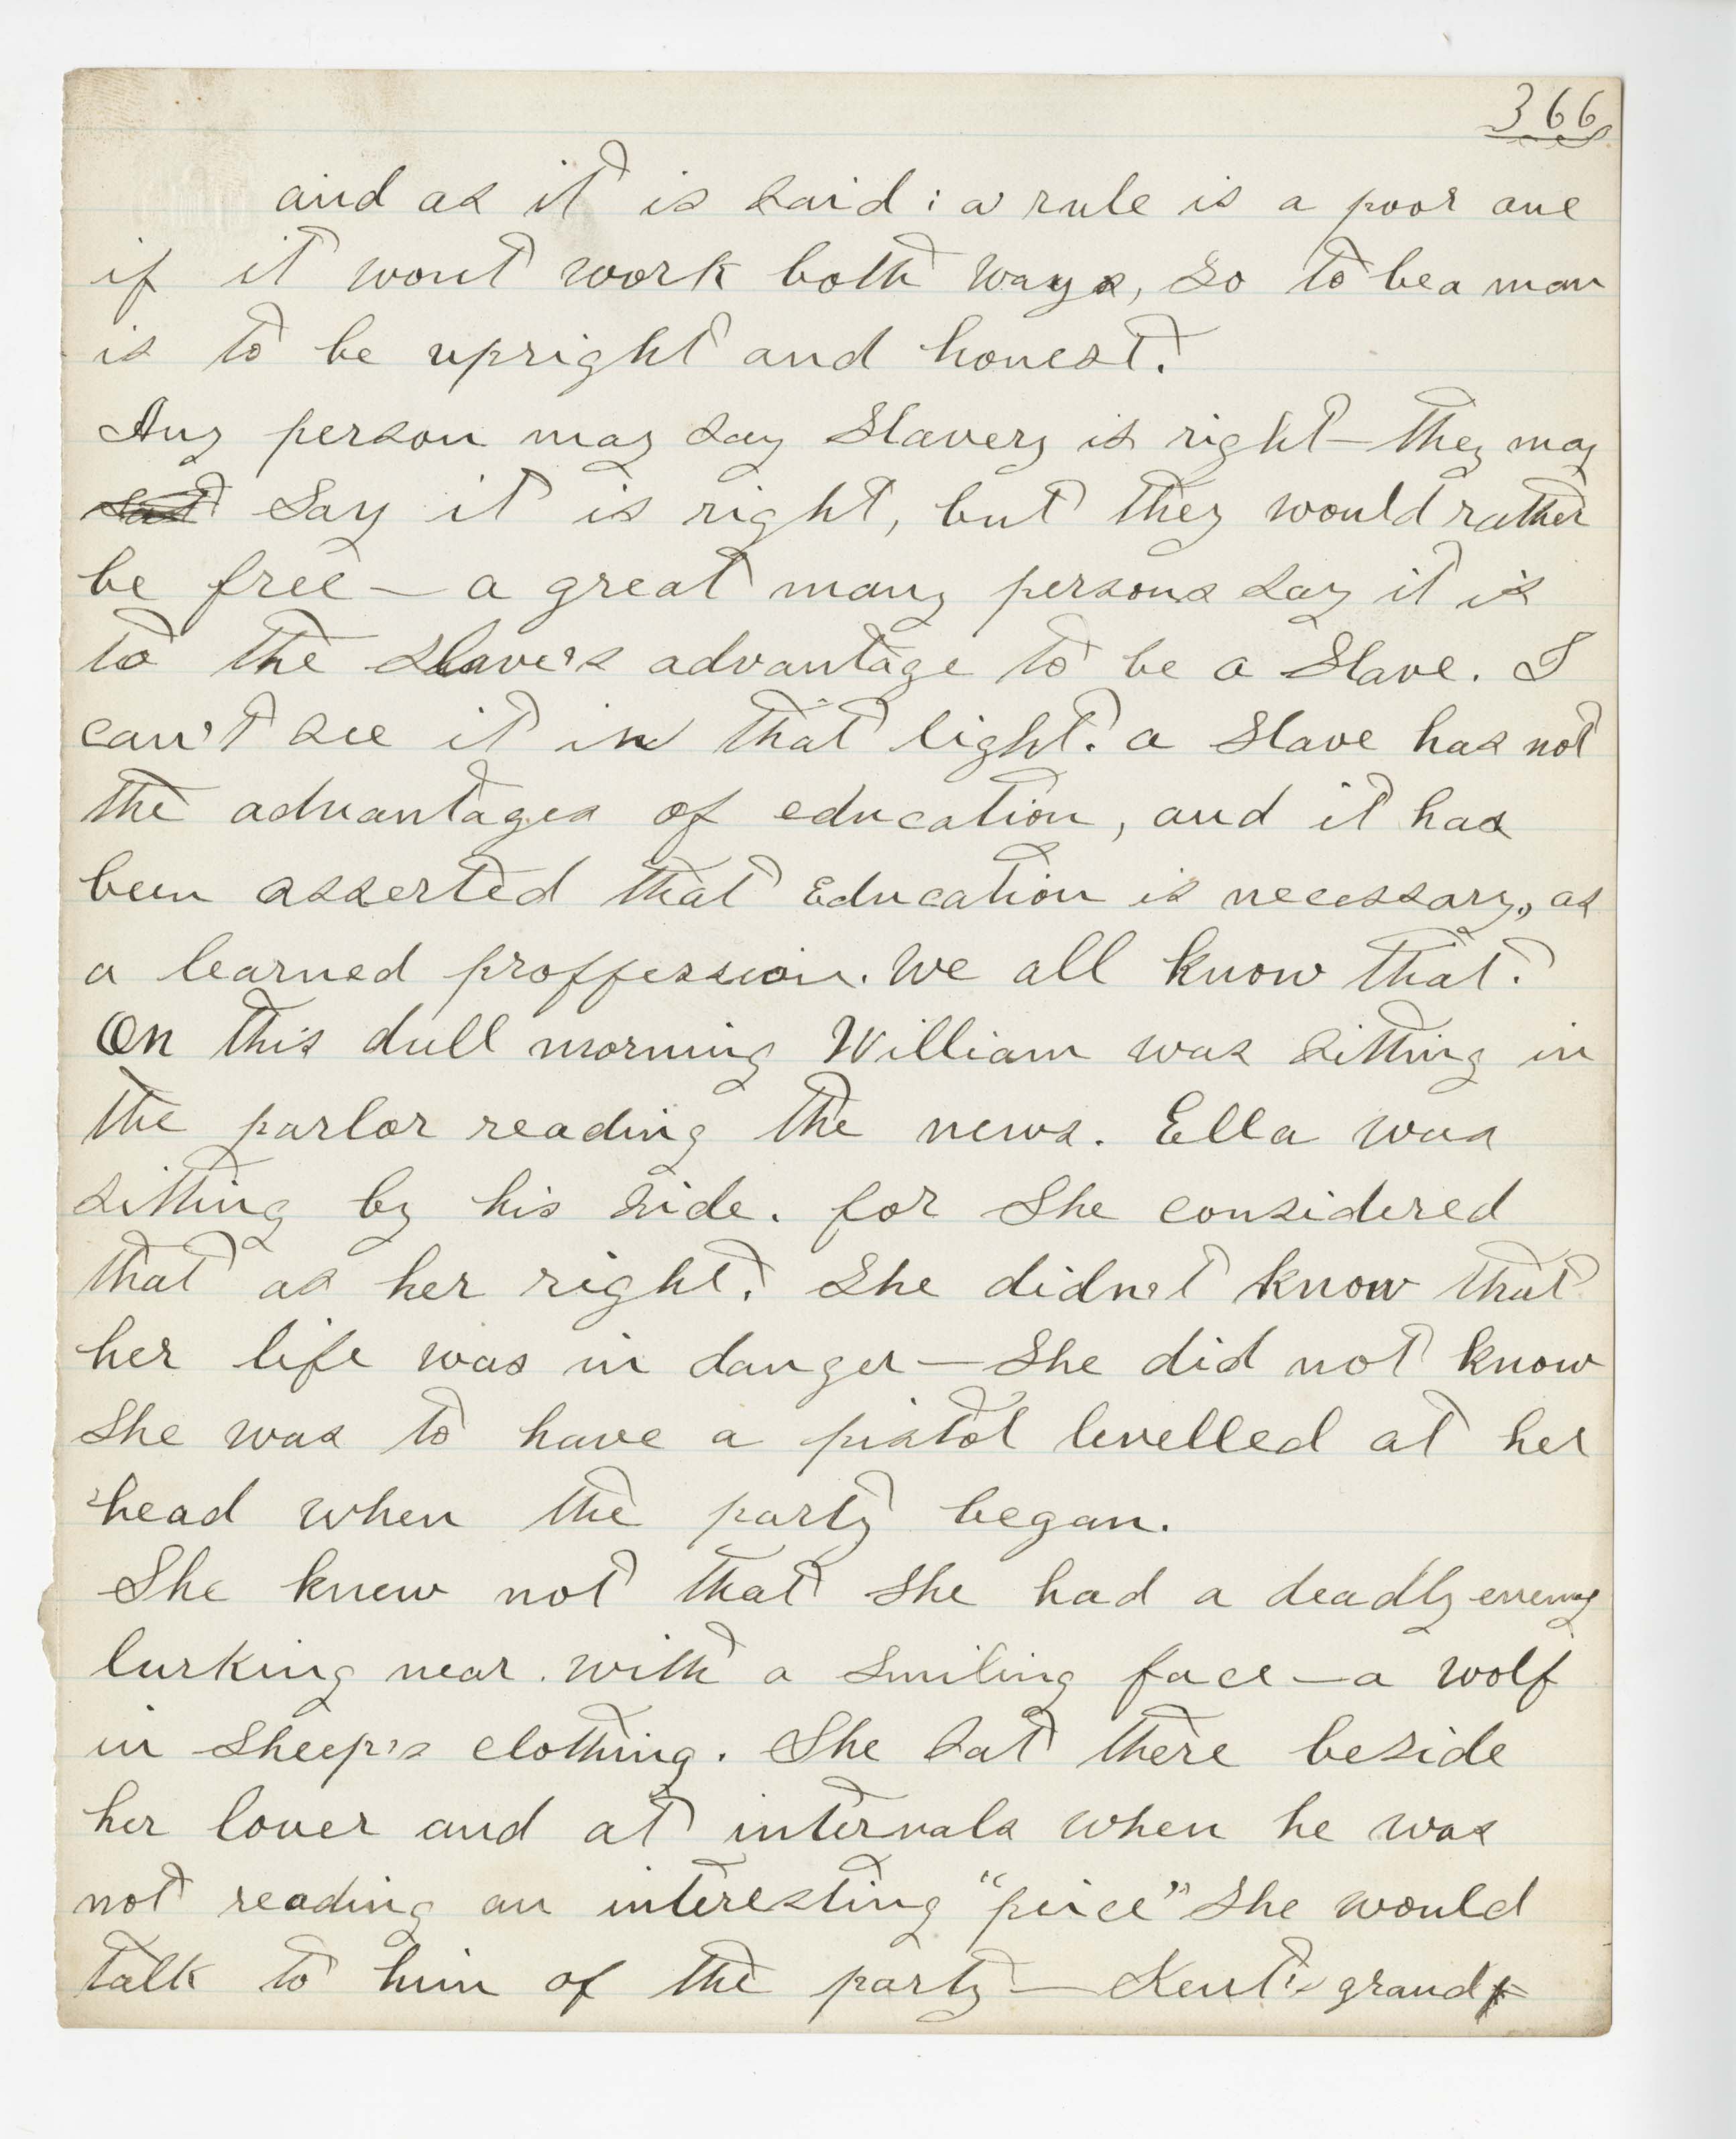 366
and as it is said: a rule is a poor one
if it wont work both ways, so to be a man
is to be upright and honest.
Any person may say Slavery is right—they may
say it is right, but they would rather
be free—a great many persons say it is
to the slave's advantage to be a Slave. I
can't see it in that light. a Slave has not
the advantages of education, and it has
been asserted that Education is necessary, as
a learned proffession. We all know that.
On this dull morning William was sitting in
the parlor reading the news. Ella was
sitting by his side. for She considered
that as her right. She didn't know that
her life was in danger—She did not know
She was to have a pistol levelled at her
head when the party began.
She knew not that She had a deadly enemy
lurking near. with a smiling face—a wolf
in sheep's clothing. She sat there beside
her lover and at intervals when he was
not reading an interesting "peice" She would
talk to him of the party—Kent's grand